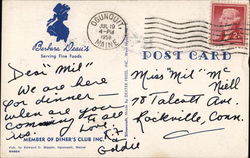 Barbara Dean's
Serving Fine Foods
OGUNQUIT
JUL 19
4-PM
1958
MAINE
2¢
POST CARD
Dear "Mil"
We are here
for dinner -
when are you
coming to see
us? Love
Goldie
Miss "Mil" Mc
Neill
78 Talcott Ave.
Rockville, Conn.
MEMBER OF DINER'S CLUB INC.